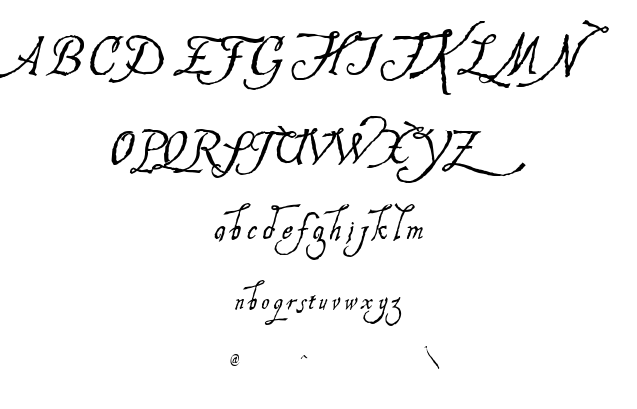 A B C D E F G H I J K L M N
O P Q R S T U V W X Y Z
a b c d e f g h i j k l m
n b o q r s t u v w x y z
@ ^ \